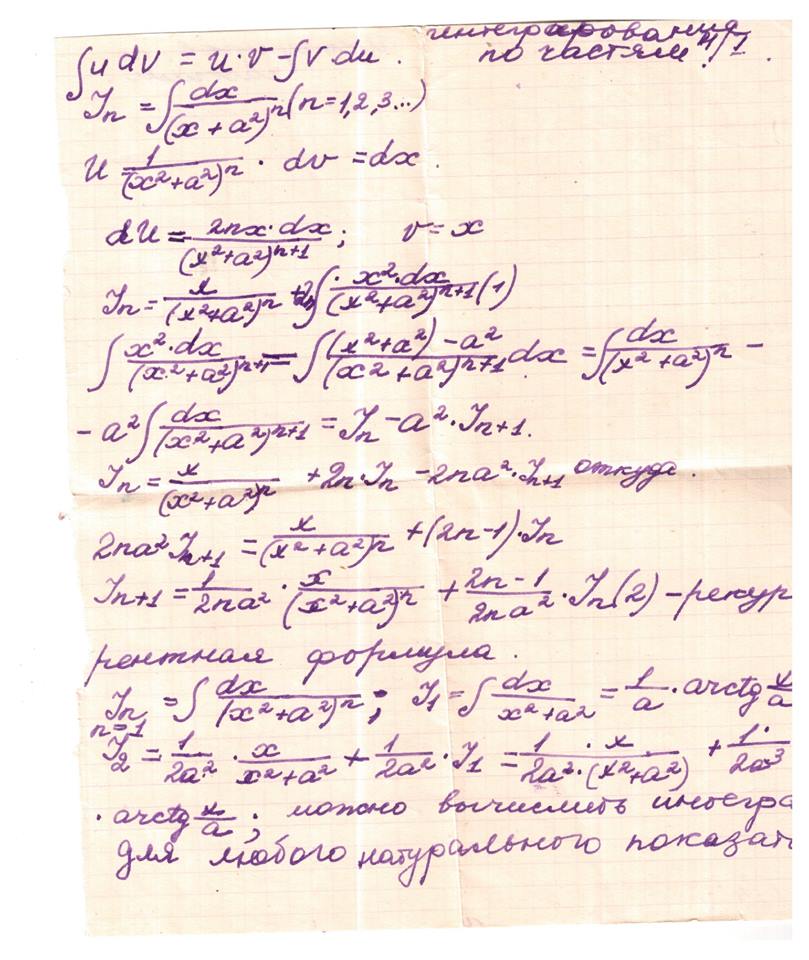 интегрирования
по частям! 4/1
∫u dv = u·v - ∫v du.
Jn = ∫ dx/(x + a²)ⁿ (n = 1,2,3...)
U = 1/(x²+a²)ⁿ · dv = dx.
dU = 2nx·dx/(x²+a²)ⁿ⁺¹; v = x
Jn = x/(x²+a²)ⁿ + 2n∫ x²·dx/(x²+a²)ⁿ⁺¹ (1)
∫ x²·dx/(x²+a²)ⁿ⁺¹ = ∫ (x²+a²) - a²/(x²+a²)ⁿ⁺¹ dx = ∫ dx/(x²+a²)ⁿ -
- a² ∫ dx/(x²+a²)ⁿ⁺¹ = Jn - a²·Jn+1.
Jn = x/(x²+a²)ⁿ + 2n·Jn - 2na²·Jn+1 откуда.
2na²Jn+1 = x/(x²+a²)ⁿ + (2n-1)·Jn
Jn+1 = 1/2na² · x/(x²+a²)ⁿ + 2n-1/2na² · Jn (2) - рекур
рентная формула.
Jn = ∫ dx/(x²+a²)ⁿ; J1 = ∫ dx/x²+a² = 1/a · arctg x/a
n=1
J2 = 1/2a² · x/x²+a² + 1/2a² · J1 = 1·x/2a²·(x²+a²) + 1·/2a³
· arctg x/a; можно вычислить интегра
для любого натурального показат